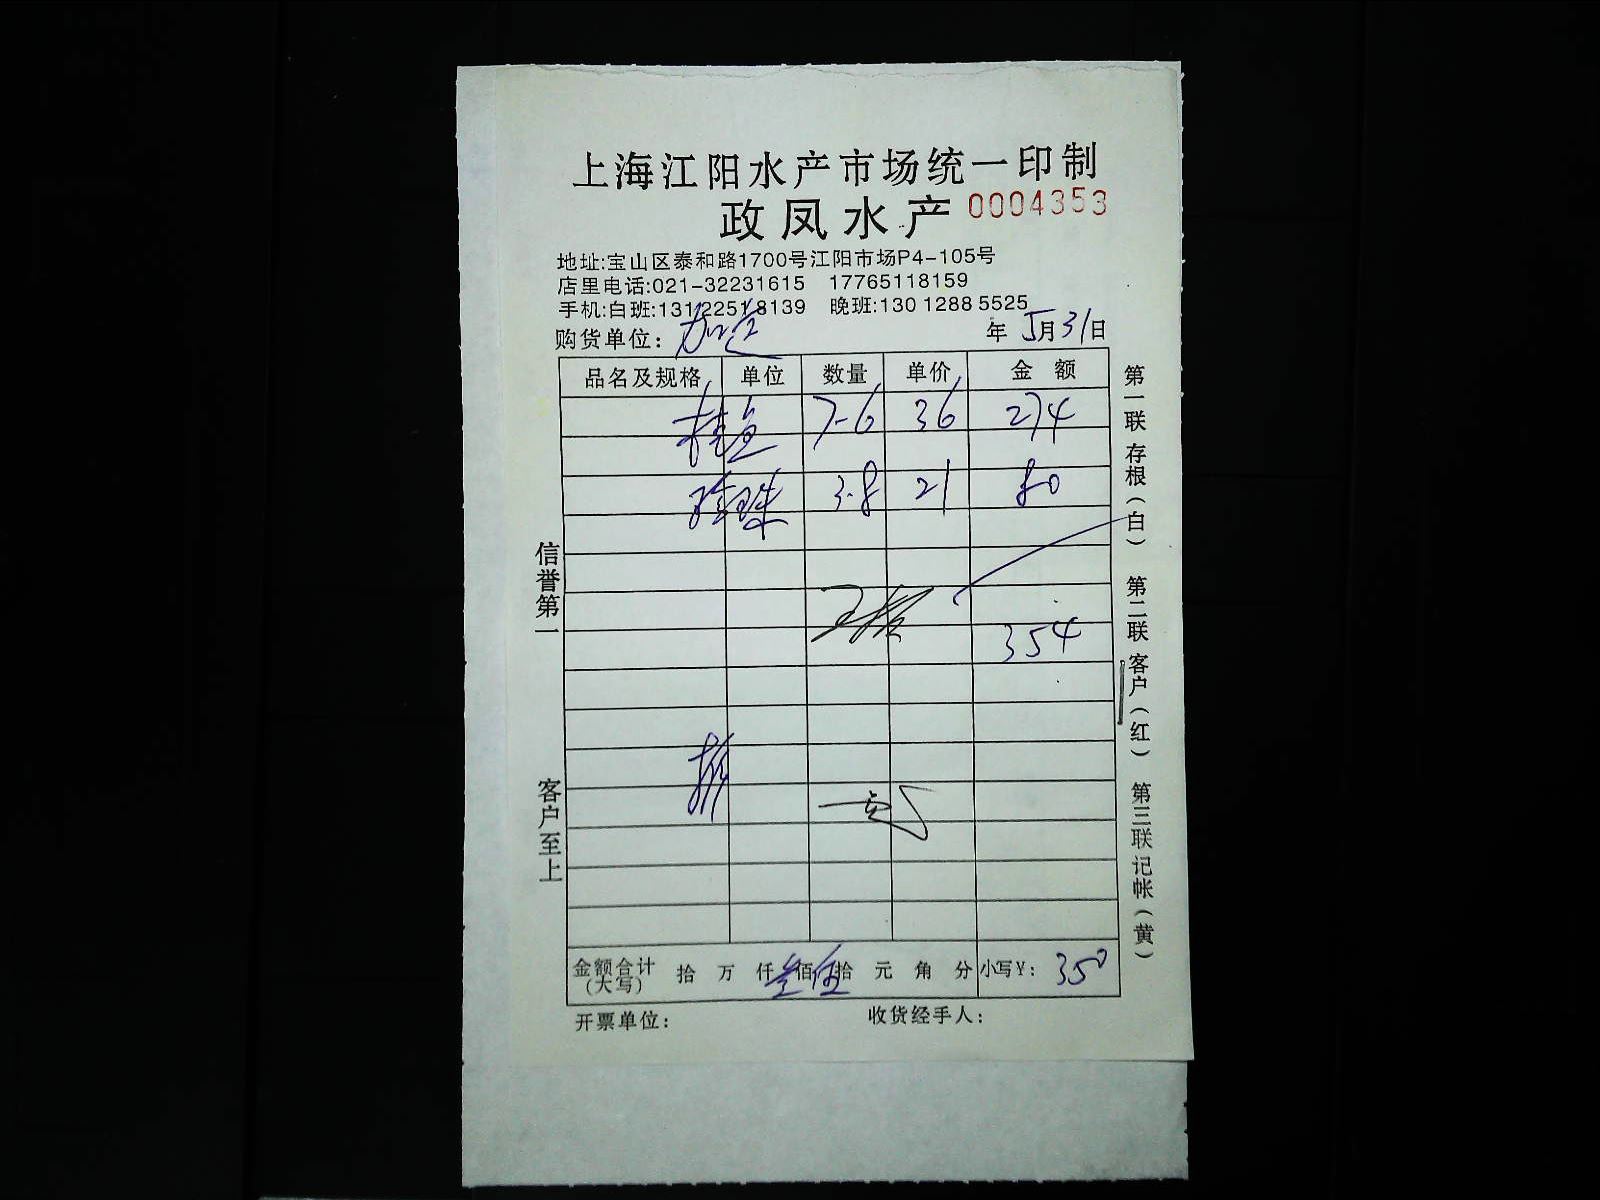 上海江阳水产市场统一印制
政凤水产 0004353
地址:宝山区泰和路1700号江阳市场P4-105号
店里电话:021-32231615 17765118159
手机:白班:13122518139 晚班:130 1288 5525
购货单位: 年 5月31日
品名及规格 单位 数量 单价 金额
桂鱼 7-6 36 274
珍珠 3.8 21 80
354
金额合计(大写) 拾 万 仟 叁佰 伍拾 元 角 分 小写¥: 350
开票单位: 收货经手人:
信誉第一
客户至上
第一联 存根(白) 第二联 客户(红) 第三联 记帐(黄)